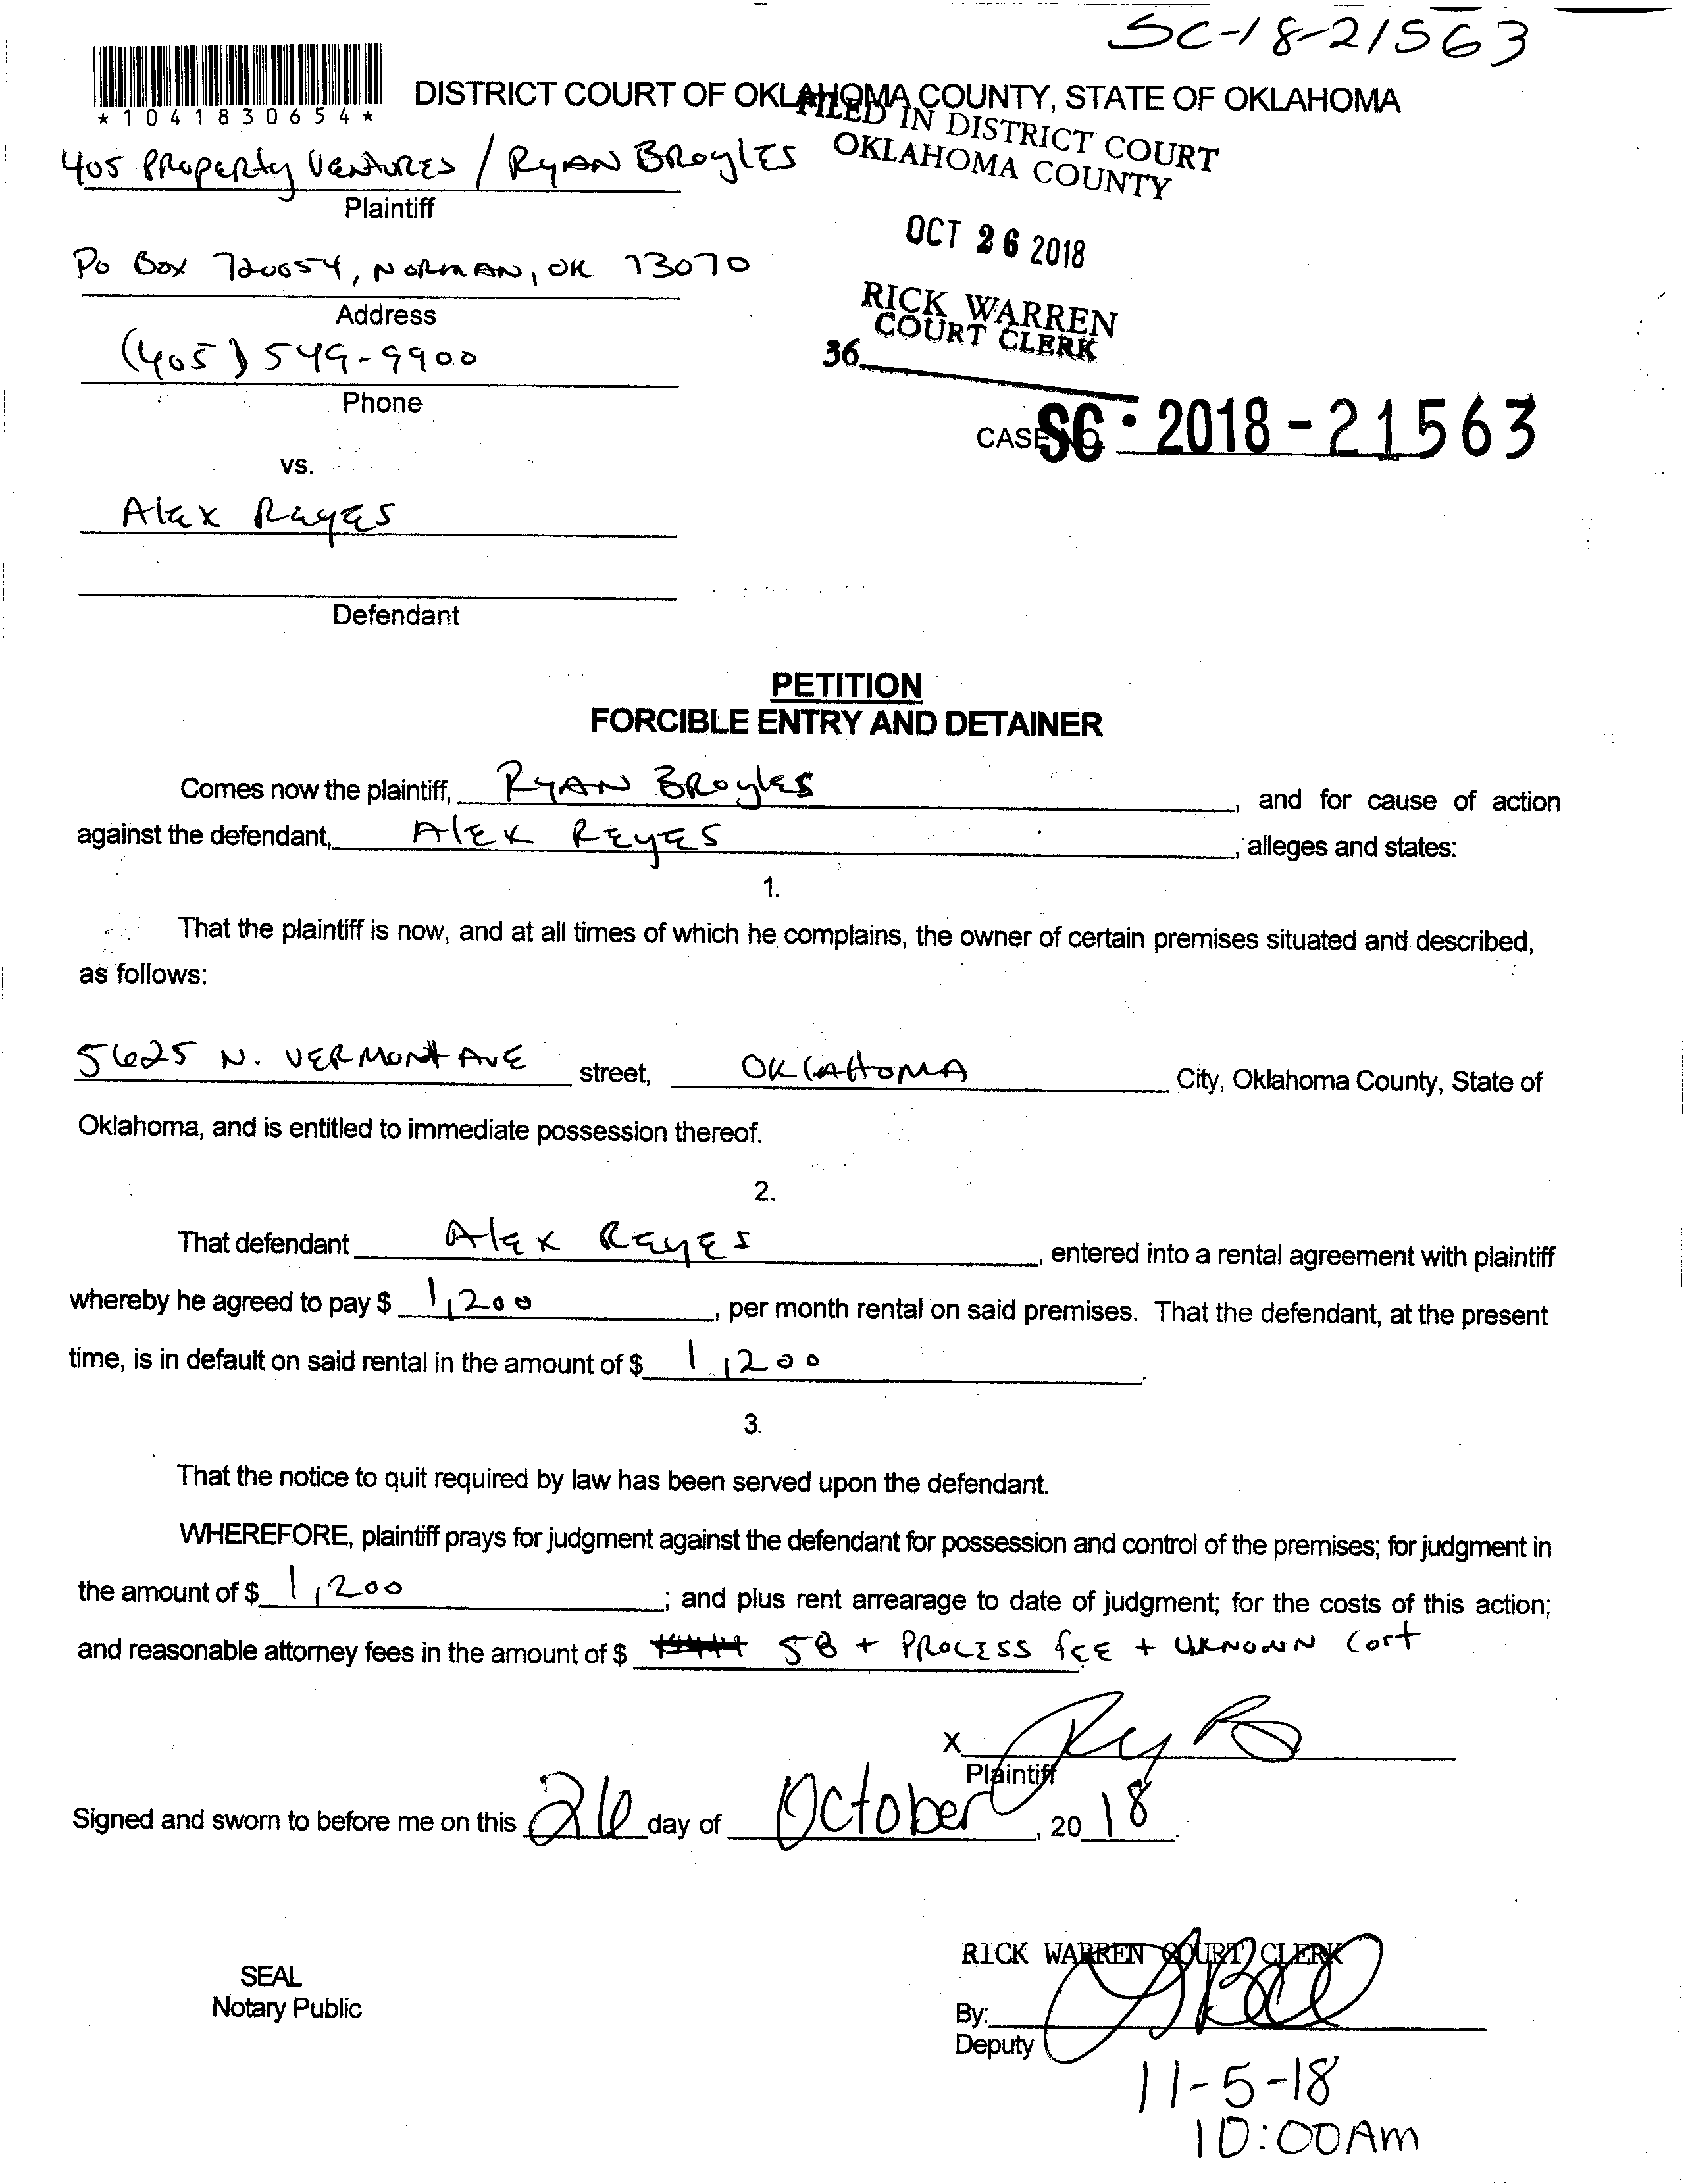 SC-18-21563
*1041830654*
DISTRICT COURT OF OKLAHOMA COUNTY, STATE OF OKLAHOMA
FILED IN DISTRICT COURT
OKLAHOMA COUNTY
405 PROPERTY VENTURES / RYAN BROYLES
Plaintiff
OCT 26 2018
PO BOX 720054, NORMAN, OK 73070
Address
RICK WARREN
COURT CLERK
(405) 549-9900
36
Phone
CASE NO. SC · 2018-21563
vs.
Alex Reyes
Defendant
PETITION
FORCIBLE ENTRY AND DETAINER
Comes now the plaintiff, RYAN BROYLES, and for cause of action
against the defendant, Alex REYES, alleges and states:
1.
That the plaintiff is now, and at all times of which he complains, the owner of certain premises situated and described,
as follows:
5625 N. VERMONT AVE street, OKLAHOMA City, Oklahoma County, State of
Oklahoma, and is entitled to immediate possession thereof.
2.
That defendant Alex REYES, entered into a rental agreement with plaintiff
whereby he agreed to pay $ 1,200, per month rental on said premises. That the defendant, at the present
time, is in default on said rental in the amount of $ 1,200.
3.
That the notice to quit required by law has been served upon the defendant.
WHEREFORE, plaintiff prays for judgment against the defendant for possession and control of the premises; for judgment in
the amount of $ 1,200; and plus rent arrearage to date of judgment; for the costs of this action;
and reasonable attorney fees in the amount of $ 58 + PROCESS fEE + UKNOWN Cort
X
Plaintiff
Signed and sworn to before me on this 26 day of October, 2018.
RICK WARREN COURT CLERK
SEAL
Notary Public
By:
Deputy
11-5-18
10:00AM